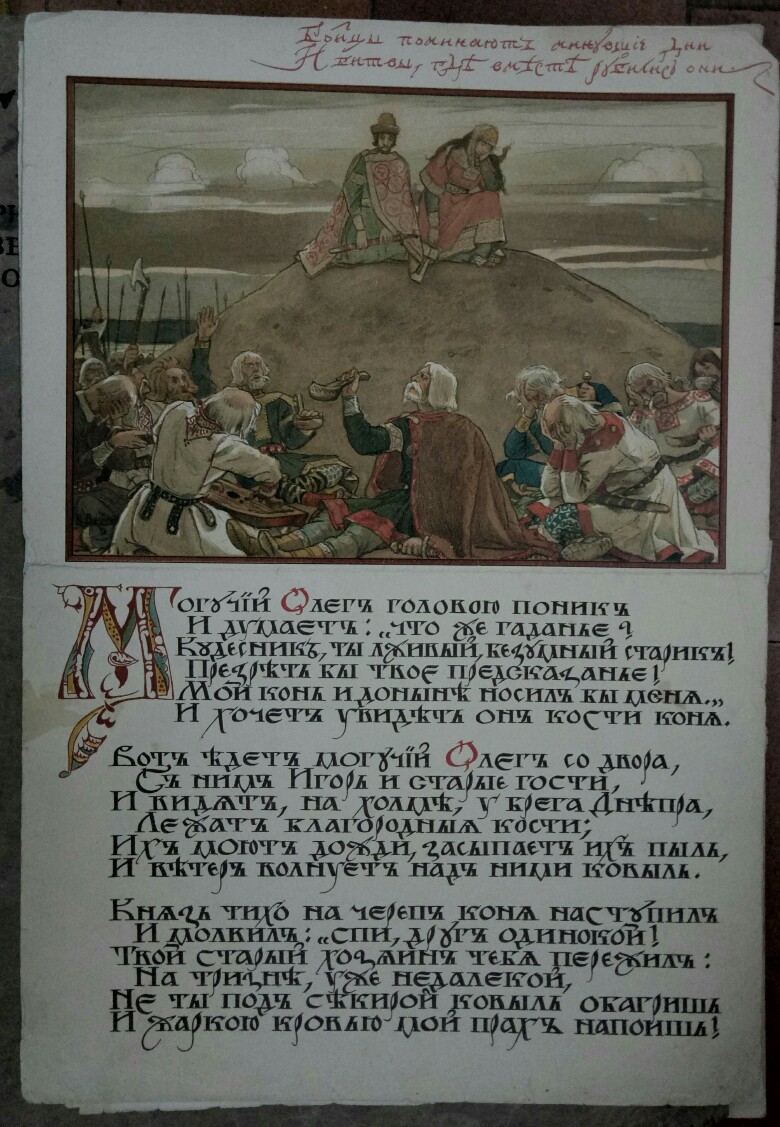 Бойцы поминаютъ минувшіе дни
И битвы, гдѣ вмѣстѣ рубились они
Могучій Олегъ головою поникъ
И думаетъ: „что же гаданье?
Кудесникъ, ты лживый, безумный старикъ!
Презрѣть бы твое предсказанье!
Мой конь и донынѣ носилъ бы меня.„
И хочетъ увидѣть онъ кости коня.
Вотъ ѣдетъ могучій Олегъ со двора,
Съ нимъ Игорь и старые гости,
И видятъ, на холмѣ, у брега Днѣпра,
Лежатъ благородныя кости;
Ихъ моютъ дожди, засыпаетъ ихъ пыль,
И вѣтеръ волнуетъ надъ ними ковыль.
Князь тихо на черепъ коня наступилъ
И молвилъ: „спи, другъ одинокой!
Твой старый хозяинъ тебя пережилъ:
На тризнѣ, уже недалекой,
Не ты подъ сѣкирой ковыль обагришь
И жаркою кровью мой прахъ напоишь!